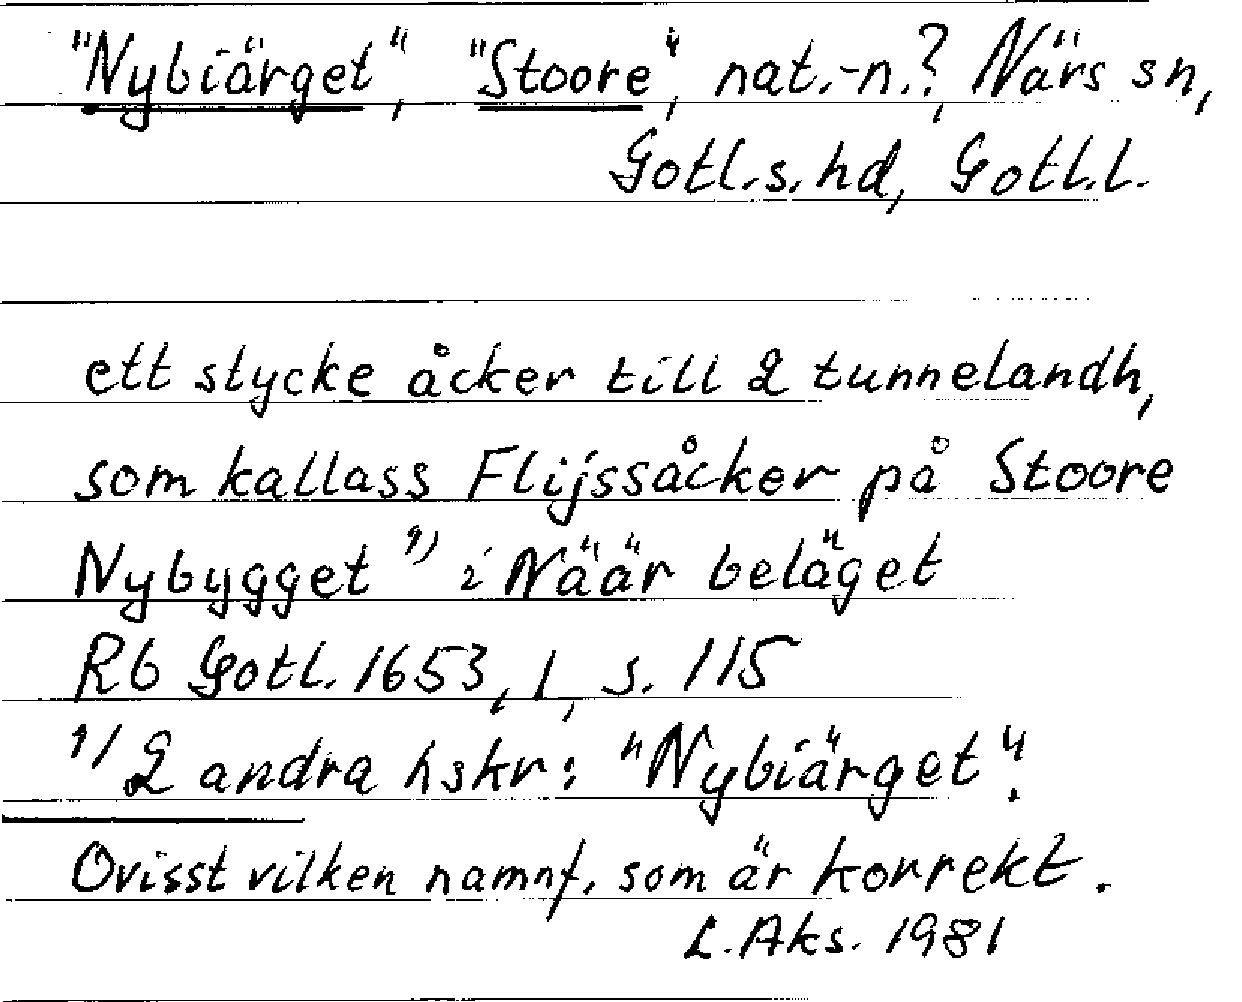 "Nybiärget", "Stoore", nat.-n.?, Närs sn,
Gotl.s.hd, Gotl.l.
ett stycke åcker till 2 tunnelandh,
som kallass Flijssåcker på Stoore
Nybygget 1) i Näär beläget
Rb Gotl. 1653, 1, s. 115
1) 2 andra hskr: "Nybiärget".
Ovisst vilken namnf. som är korrekt.
L. Aks. 1981